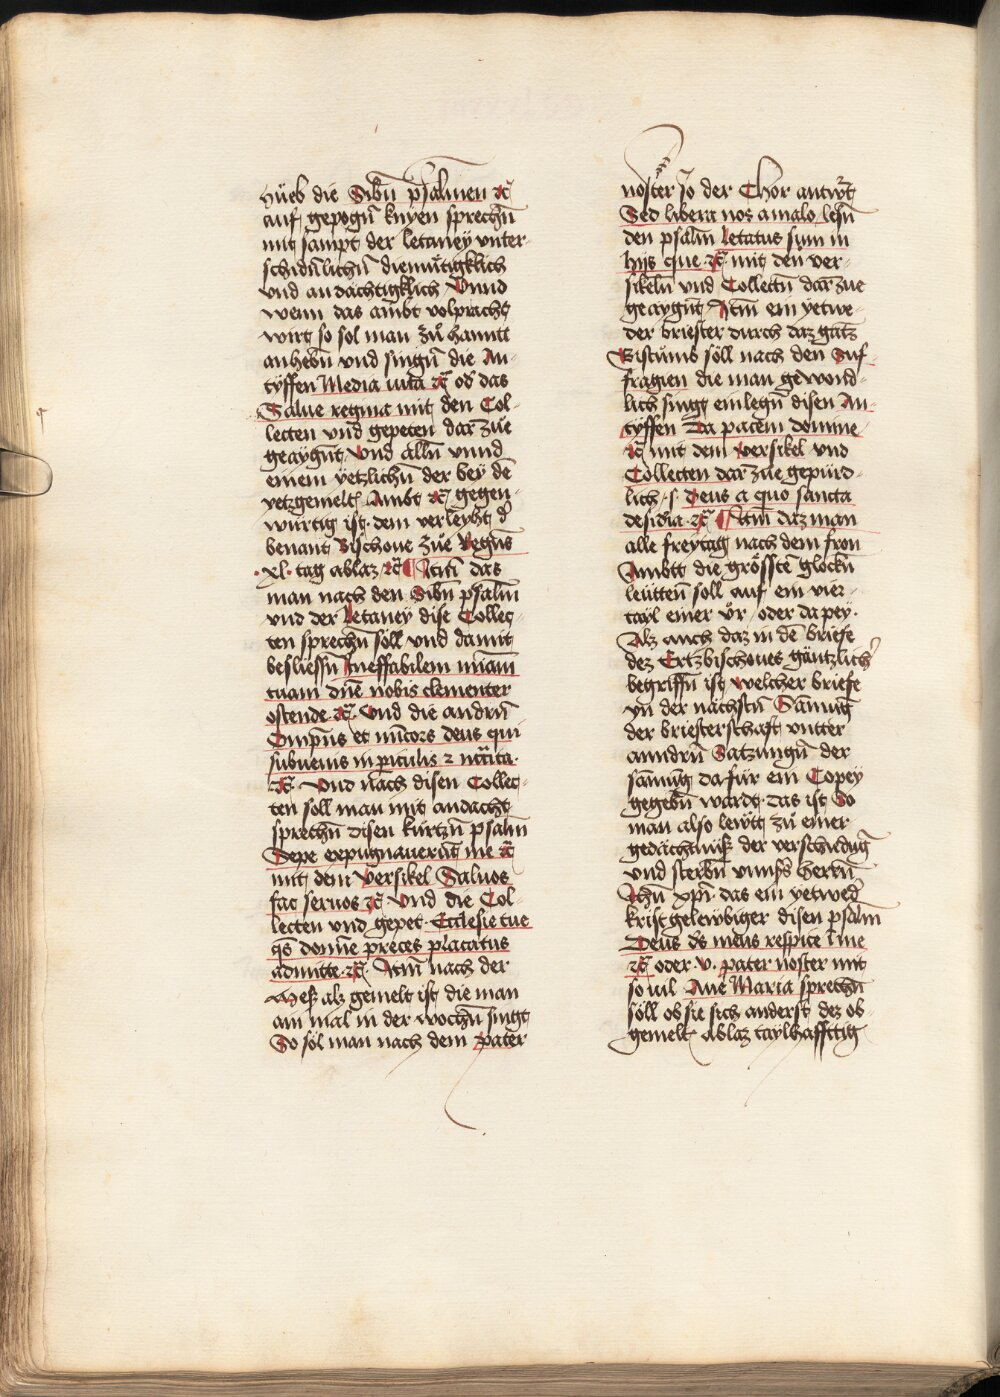 hüeb die Sibn̄ psalmen ꝛc̄
auf gepogn̄ knyen sprechn̄
mit sampt der letaney vnter-
schidn̄lichn̄ diemütigklich
vnd andächtigklich Vnnd
wenn das ambt volpracht
wirt so sol man zů hannt
anhebn̄ vnd singn̄ die An-
tÿffen Media uita ꝛc̄ od̄ das
Salue regina mit den Col-
lecten vnd gepeten dar zue
geaygnt Vnd alln̄ vnnd
einem yetzlichn̄ der bey de͂
yetzgemelt Ambt ꝛc̄ gegen-
würtig ist dem verleyht d̄
benant Bischoue zue Regn̄s
·xl· tag ablaz ꝛc̄ ¶ Itm̄ das
man nach den Sibn̄ psalm̄
vnd der Letaney dise Collec-
ten sprechn̄ söll vnd damit
besliessn̄ Ineffabilem mi͞am
tuam dn̄e nobis clementer
ostende ꝛc̄. Vnd die andrn̄
Omp̄ns et mi͞cors deus qui
subuenis in piculis ⁊ nc͞cita·
ꝛc̄. Vnd nach disen Collec-
ten soll man mit andacht
sprechn̄ disen kurtzn̄ psalm̄
Sepe expugnauerūt me ꝛc̄
mit dem Versikel Saluos
fac seruos ꝛc̄ Vnd die Col-
lecten vnd gepet· Ecclesie tue
qs̄ domne preces placatus
admitte ꝛc̄. Itm̄ nach der
Meß alz gemelt ist die man
ain mal in der wochn̄ singt
So söl man nach dem pater
noster So der Chor antwꝛt
Sed libera nos a malo lesn̄
den psalm̄ Letatus sum in
hijs que ꝛc̄ mit den ver-
sikeln vnd Collectn̄ dar zue
geaygnt Itm̄ ein yetwe-
der briester durch daz gātz
Bistumb söll nach den Suf-
fragien die man gewond-
lich singt einlegn̄ disen An-
tÿffen Da pacem domine
ꝛc̄ mit dem Versikel vnd
Collecten dar zue gepürd-
lich ·s· Deus a quo sancta
desid̄ia ꝛc̄ ¶ Itm̄ daz man
alle freytag nach dem fron
Ambtt die grösste͂ glockn̄
leütten soll auf ein vier-
tayl einer ür oder da pey·
Alz auch daz in de͂ briefe
dez Ertzbischoues gäntzlich
begriffn̄ ist welcher briefe
yn der nächstn̄ Sam̄nūg
der briesterschaft vnter
anndrn̄ Satzungn̄ der
sam̄nūg dafür ein Copey
gegebn̄ wardt· Das ist So
man also lewtt zů einer
gedächtnuß der verschidūg
vnd sterbn̄ vnnsꝛs herrn̄
Ihū xp̄i· das ein yetwed̄
krist gelewbiger disen psalm̄
Deus ds̄ meus respice i͞ me
ꝛc̄ oder ·v· pater noster mit
so uil Aue Maria sprechn̄
söll ob sie sich anderst dez ob-
gemelt ablaz taylhaffttig